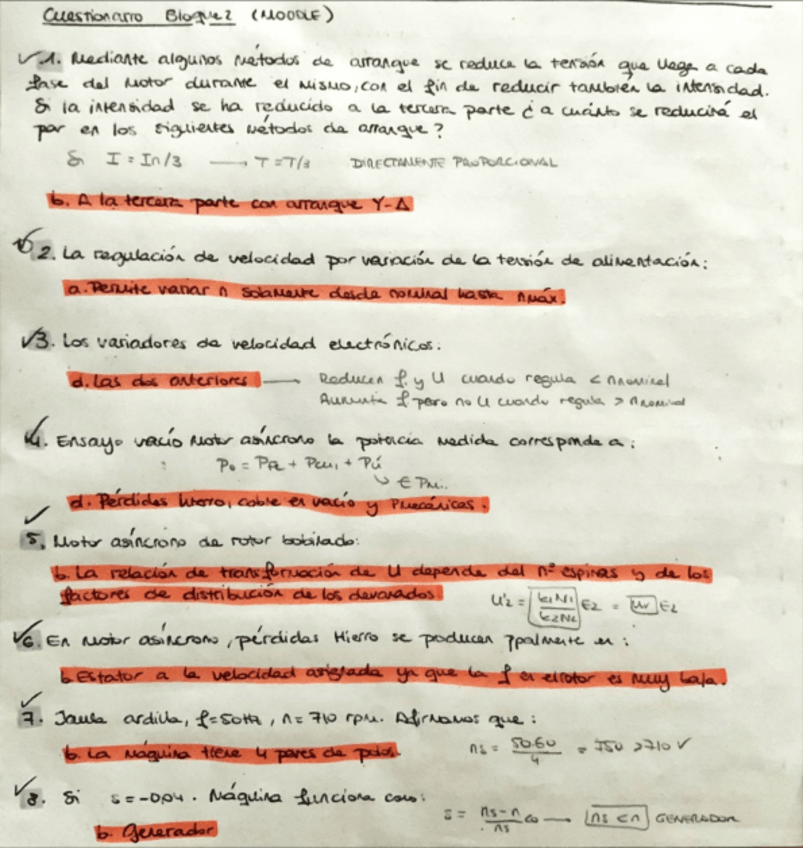 Cuestionario Bloque 2 (MOODLE)
✓ 1. Mediante algunos métodos de arranque se reduce la tensión que llega a cada
fase del motor durante el mismo, con el fin de reducir también la intensidad.
Si la intensidad se ha reducido a la tercera parte ¿a cuánto se reducirá el
par en los siguientes métodos de arranque?
Si I = In/3 → T = T/3 DIRECTAMENTE PROPORCIONAL
b. A la tercera parte con arranque Y-Δ
2. La regulación de velocidad por variación de la tensión de alimentación:
a. Permite variar n solamente desde nominal hasta nmáx.
✓ 3. Los variadores de velocidad electrónicos:
d. Las dos anteriores → Reducen f y U cuando regula < nnominal
Aumenta f pero no U cuando regula > nnominal
✓ 4. Ensayo vacío motor asíncrono la potencia medida corresponde a:
P0 = PFe + Pcu1 + Pú
↳ ∈ Pm..
d. Pérdidas hierro, cobre en vacío y Pmecánicas.
✓
5. Motor asíncrono de rotor bobinado:
b. La relación de transformación de U depende del nº espiras y de los
factores de distribución de los devanados.
U'2 = k1N1/k2N2 E2 = E2
✓ 6. En motor asíncrono, pérdidas Hierro se producen ppalmente en:
b. Estator a la velocidad asignada ya que la f en el rotor es muy baja.
✓
7. Jaula ardilla, f=50Hz, n = 710 rpm. Afirmamos que:
b. La máquina tiene 4 pares de polos. ns = 50·60/4 = 750 > 710 ✓
✓ 8. Si s = -0,04. Máquina funciona como:
s = ns-n/ns <0 → ns < n GENERADOR
b. Generador